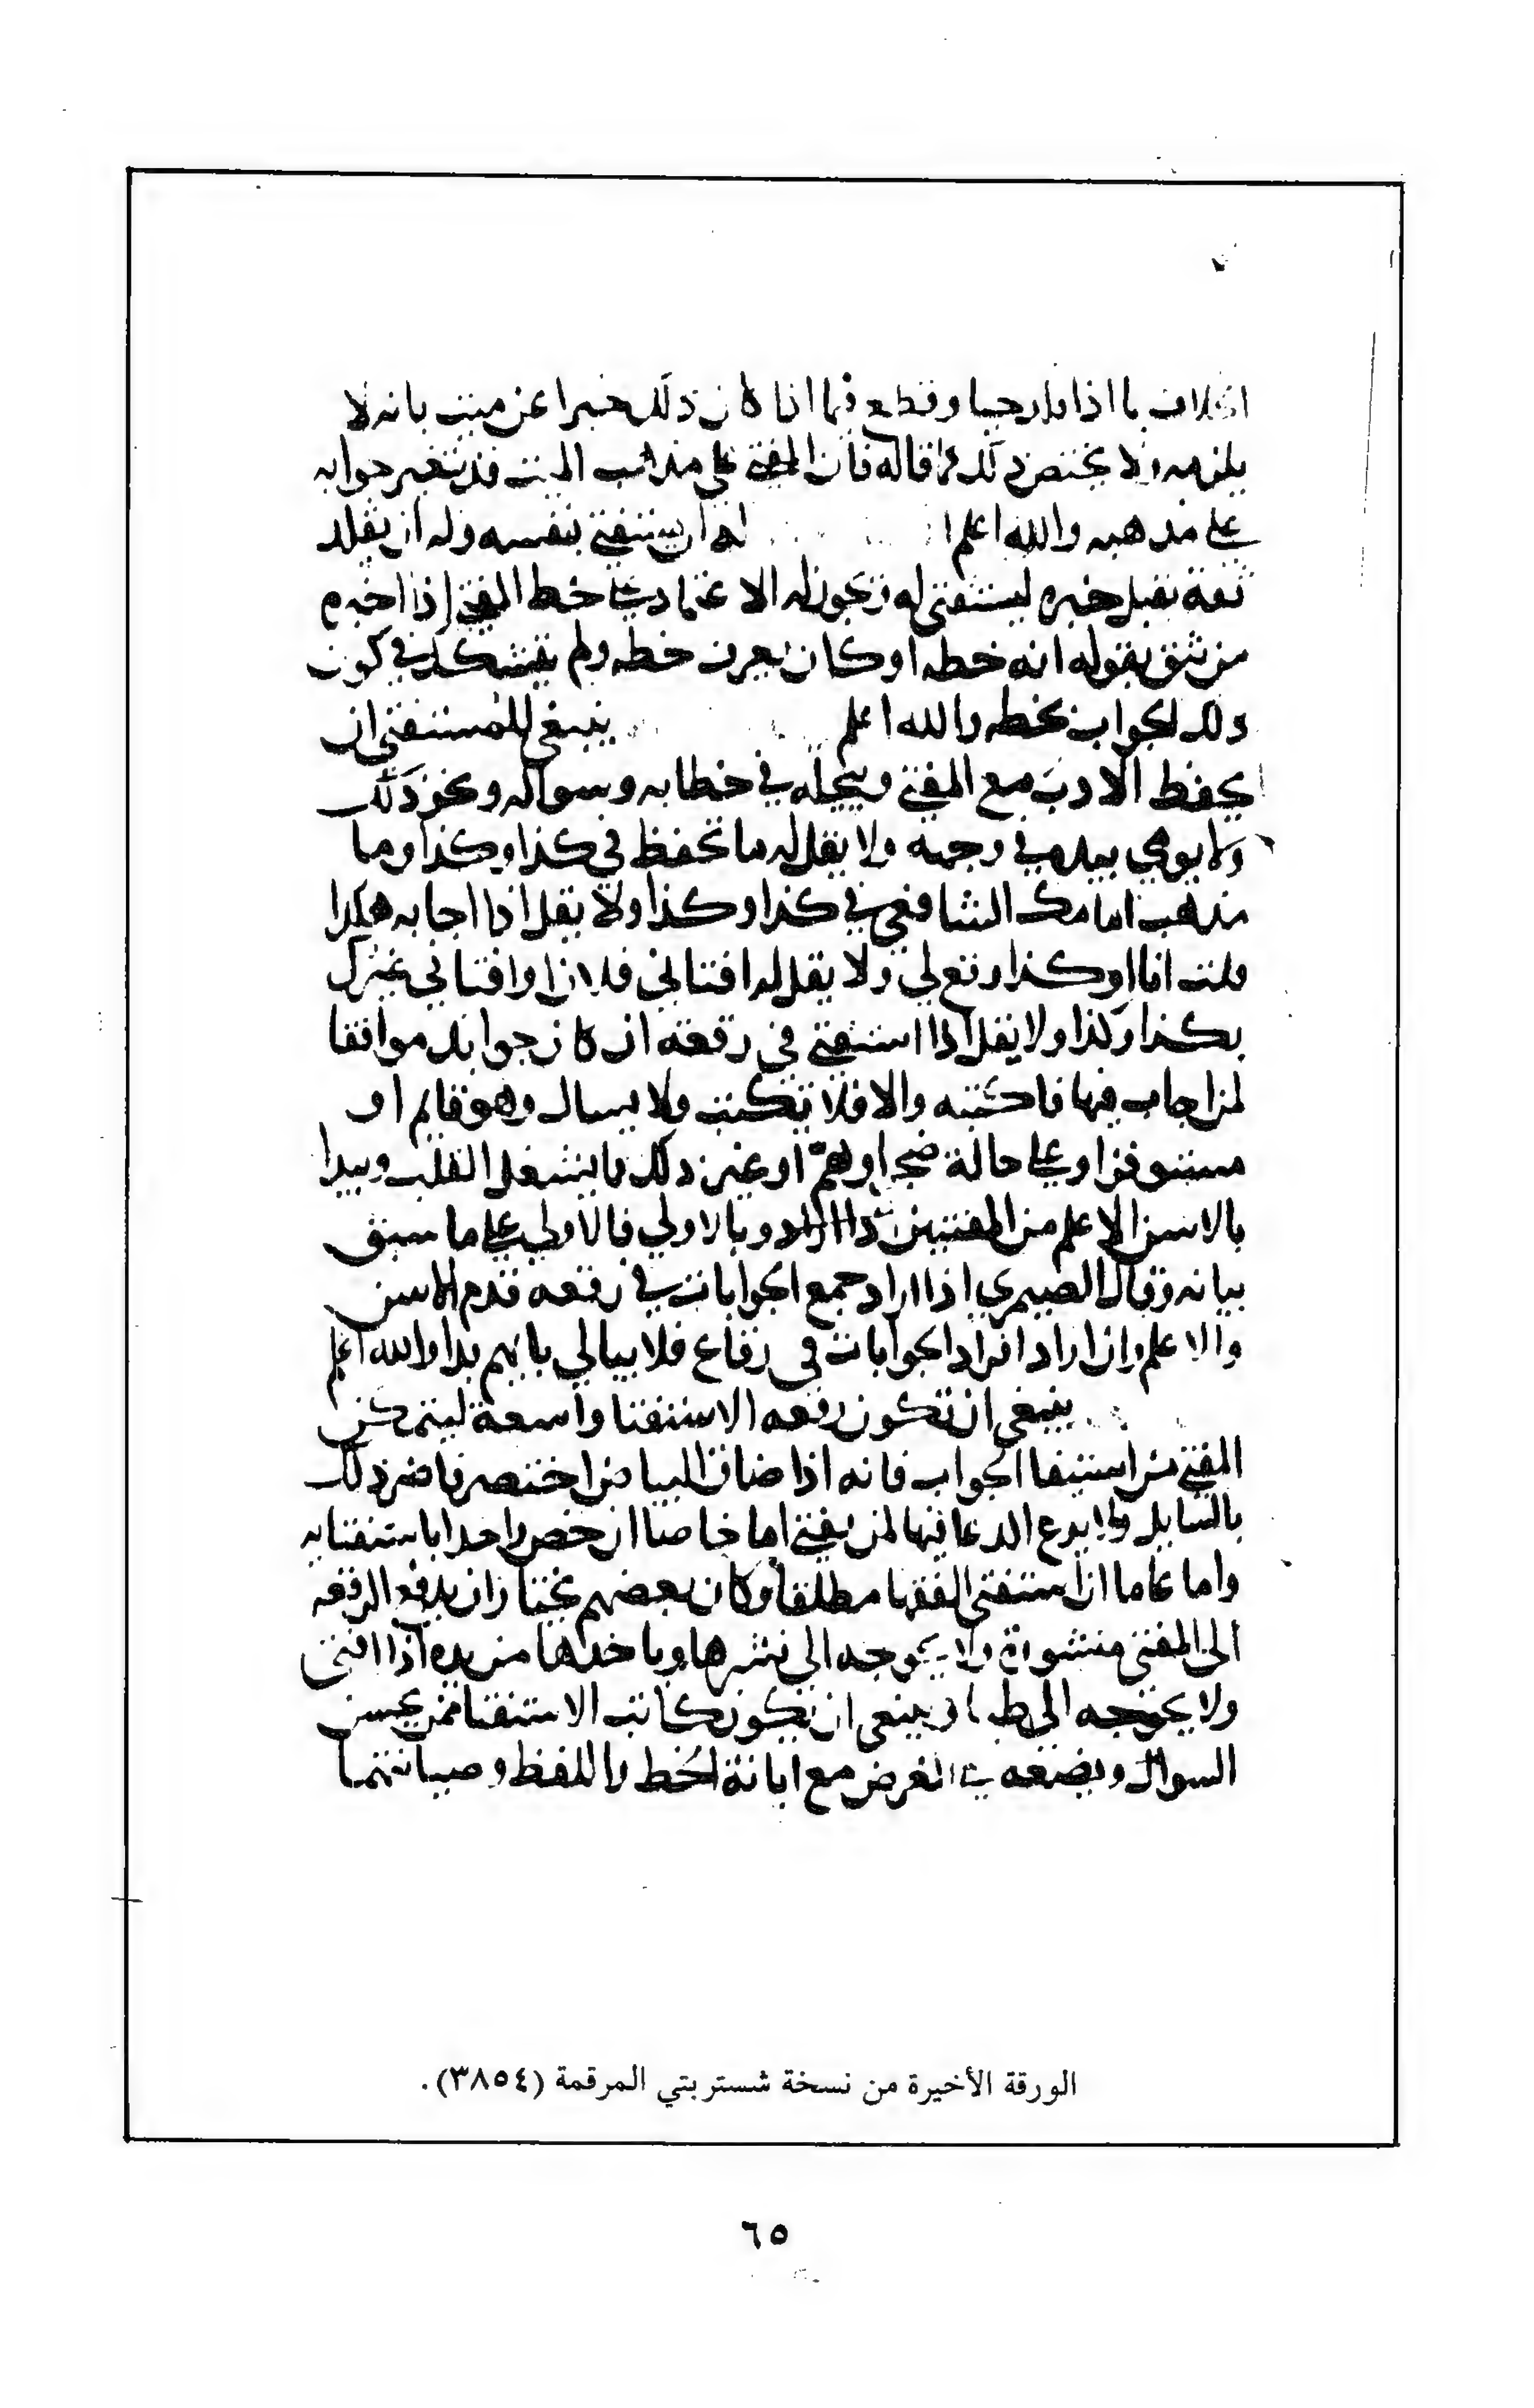 الخلاف بما اذا قلد حيا وقطع فيما اذا كان ذلك خبرا عن ميت بانه لا
يلزمه ولا يختص ذلك بما قاله فان المفتي على مذاهب الميت قد يتغير جوابه
على مذهبه والله اعلم له ان يستفتي بنفسه وله ان يقلد
ثقة يقبل خبره ليستفتي له ويجوز له الاعتماد على خط المفتي اذا اخبره
من يثق بقوله انه خطه او كان يعرف خطه ولم يتشكك في كون
ذلك الجواب بخطه والله اعلم ينبغي للمستفتي ان
يحفظ الادب مع المفتي ويبجله في خطابه وسواله ونحو ذلك
ولا يومي بيده في وجهه ولا يقل له ما تحفظ في كذا وكذا وما
مذهب امامك الشافعي في كذا وكذا ولا يقل اذا اجابه هكذا
قلت انا او كذا وقع لي ولا يقل له افتاني فلان او افتاني غيرك
بكذا وكذا ولا يقل اذا استفتي في رقعة ان كان جوابك موافقا
لمن اجاب فيها فاكتبه والا فلا تكتب ولا يسال وهو قايم او
مستوفز او على حالة ضجر او هم او غير ذلك مما يشغل القلب ويبدا
بالاسن الاعلم من المفتيين وبالاولي فالاولي على ما سبق
بيانه وقال الصيمري اذا اراد جمع الجوابات في رقعه قدم الاسن
والاعلم وان اراد افراد الجوابات في رقاع فلا يبالي بايهم بدا والله اعلم
ينبغي ان تكون رقعه الاستفتا واسعة ليتمكن
المفتي من استيفا الجواب فانه اذا ضاق البياض اختصر فاضر ذلك
بالسايل ولا يدع الدعا فيها لمن يفتي اما خاصا ان خص واحدا باستفتايه
واما عاما ان استفتي الفقها مطلقا وكان بعضهم يختار ان يدفع الرقعه
الى المفتي منشورة ولا يحوجه الي نشرها وياخذها من يده اذا افتي
ولا يحوجه الي طيها وينبغي ان يكون كاتب الاستفتا ممن يحسن
السوال ويضعه على الغرض مع ابانة الخط واللفظ وصيانتهما
الورقة الأخيرة من نسخة شستر بتي المرقمة (٣٨٥٤).
٦٥